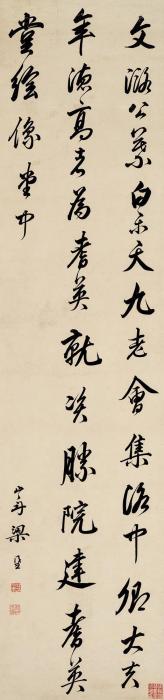 文潞公慕白乐天九老會集洛中卿大夫
年德高者為耆英就资勝院建耆英
堂绘像堂中
山舟梁